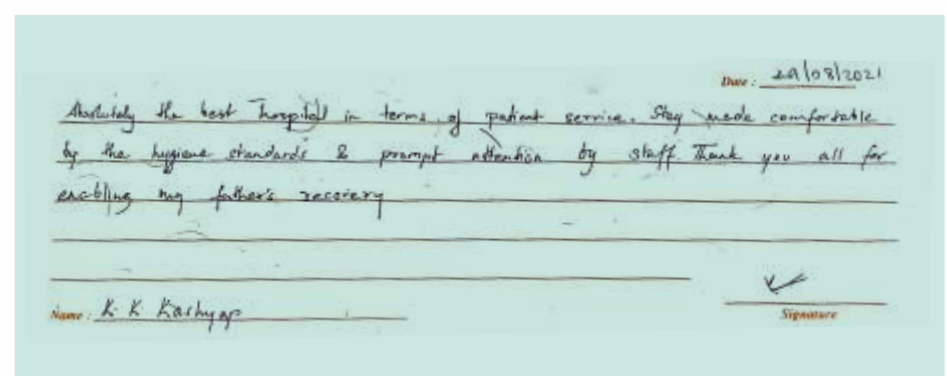 Date : 29/08/2021
Absolutely the best hospital in terms of patient service. Stay made comfortable
by the hygiene standards & prompt attention by staff. Thank you all for
enabling my father's recovery
Name : K K Kashyap
Signature